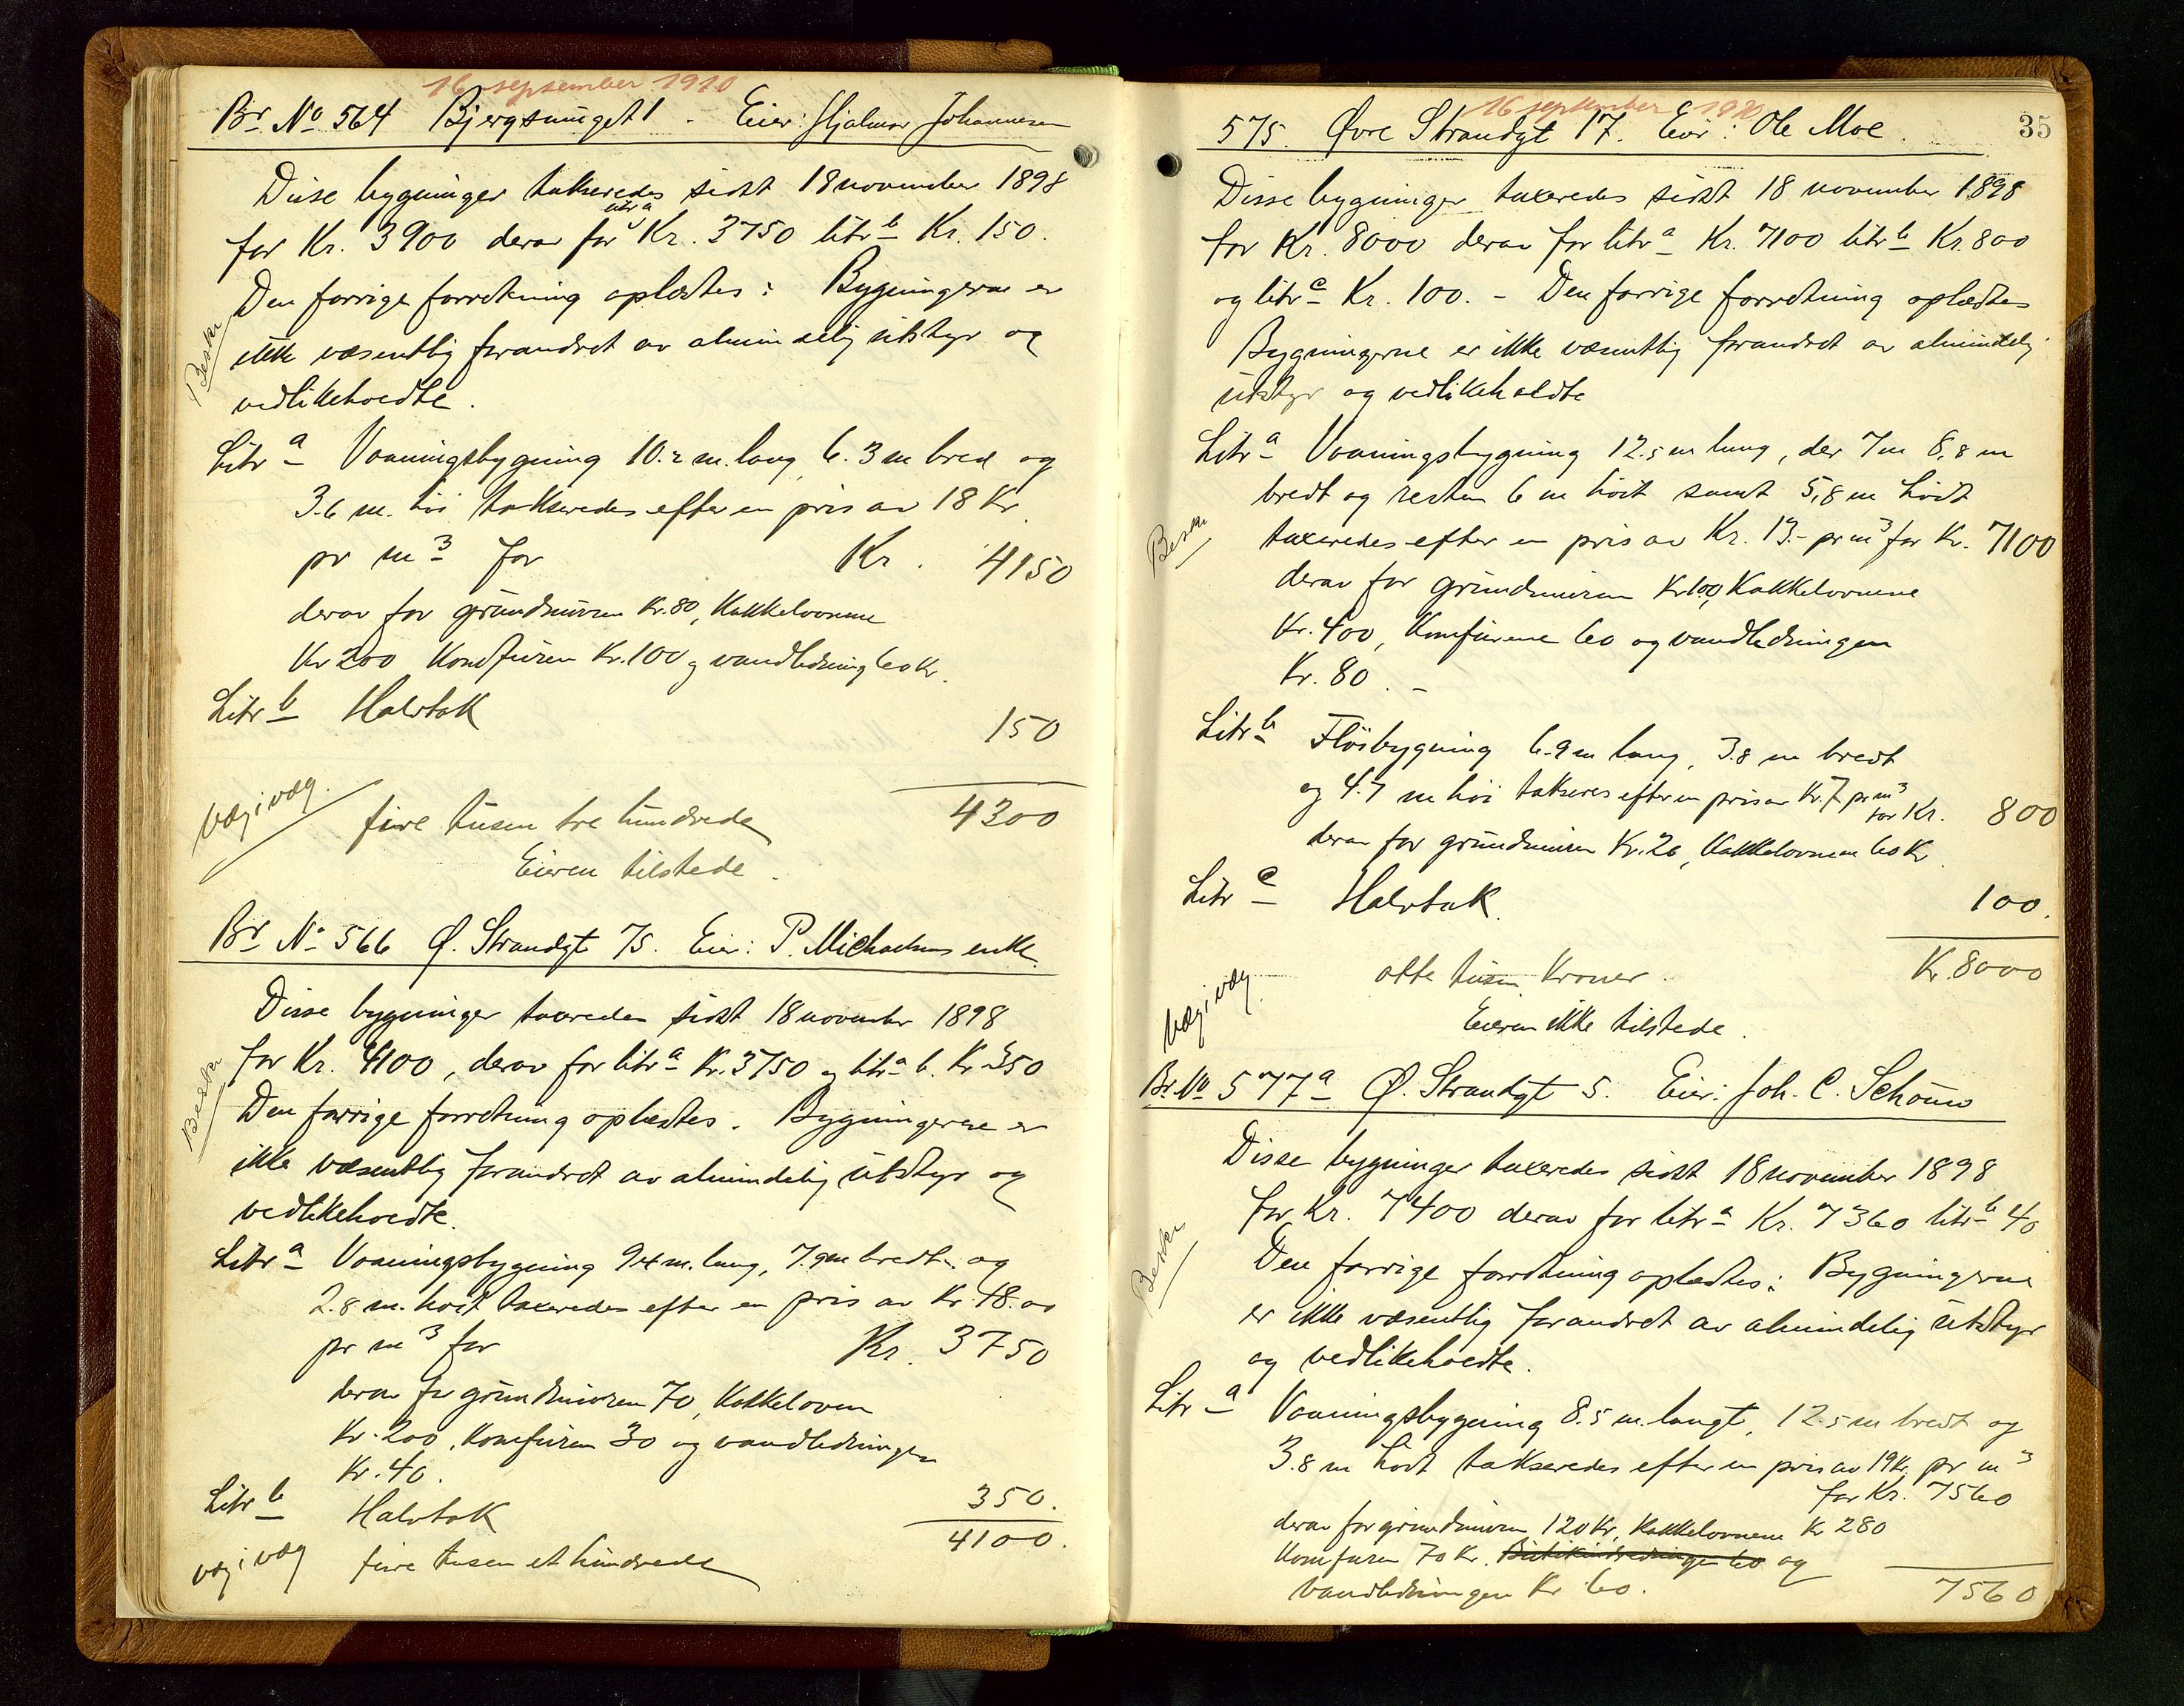 16 september 1910
Br. No 564 Bjergsmuget 1 - Eier: Hjalmar Johannesen
Disse bygninger takseredes sidst 18 november 1898
for Kr. 3900 derav for litr a Kr. 3750 litr b Kr. 150.
Den forrige forretning oplæstes: Bygningerne er
Beskr
ikke væsentlig forandret av almindelig utstyr og
vedlikeholdte.
Litr a Vaaningsbygning 10.2 m. lang, 6.3 m bred og
3.6 m. høi takseredes efter en pris av 18 Kr.
pr m3 for Kr. 4150
derav for grundmuren Kr. 80, Kakkelovnene
Kr 200 Komfuren Kr. 100 og vandledning 60 Kr.
Litr b Halvtak 150
Væg i væg. 4300
fire tusen tre hundrede
Eieren tilstede.
Br No 566 Ø. Strandgt 75. Eier: P. Michaelsens enke.
Disse bygninger taxeredes sidst 18 november 1898
for Kr. 4100, derav for litr a Kr. 3750 og litr b. Kr 350
Beskr
Den forrige forretning oplæstes. Bygningerne er
ikke væsentlig forandret av almindelig utstyr og
vedlikeholdte.
Litr a Vaaningsbygning 9.4 m. lang, 7.9 m bredt og
2.8 m. høit taxeredes efter en pris av Kr. 18.00
pr m3 for Kr. 3750
derav for grundmuren 70, Kakkeloven
Kr. 200, Komfuren 30 og vandledningen
Kr. 40.
Litr b Halvtak 350.
4100.
væg i væg fire tusen et hundrede
35
16 september 1910
575. Øvre Strandgt 17. Eier: Ole Moe.
Disse bygninger taxeredes sidst 18 november 1898
for Kr. 8000 derav for litr a Kr. 7100 litr b Kr. 800
og litr c Kr. 100. - Den forrige forretning oplæstes
Bygningerne er ikke væsentlig forandret av almindelig
utstyr og vedlikeholdte
Litr a Vaaningsbygning 12.5 m lang, der 7m 8,8 m
bredt og resten 6 m høit samt 5,8 m høit
Beskr
taxeredes efter en pris av Kr. 13.- pr m3 for Kr. 7100
derav for grundmuren Kr 100, Kakkelovnene
Kr. 400, Komfurene 60 og vandledningen
Kr. 80. -
Litr b Fløsbygning 6.9 m lang, 3.8 m bredt
og 4.7 m høi takseres efter en pris av Kr. 7 pr m3
for Kr. 800
derav for grundmuren Kr. 20, Kakkelovnen 60 Kr.
Litr c Halvtak. 100.
Kr. 8000
Væg i væg. otte tusen Kroner.
Eieren ikke tilstede.
Br. No 577 a Ø. Strandgt 5. Eier: Joh. C. Schouw
Disse bygninger taxeredes sidst 18 november 1898
for Kr. 7400 derav for litr a Kr. 7360 litr b 40
Beskr
Den forrige forretning oplæstes: Bygningerne
er ikke væsentlig forandret av almindelig utstyr
og vedlikeholdte.
Litr a Vaaningsbygning 8.5 m. langt, 12.5 m bredt og
3.8 m høit takseredes efter en pris av 19 Kr. pr m3
for Kr. 7560
derav for grundmuren 120 Kr, Kakkelovnene Kr 280
Komfuren 70 Kr. Butikindredningen 60 og
vandledningen Kr 60. 7560